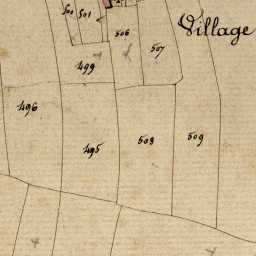 500 501
Village
506
507
499
496
495
508
509